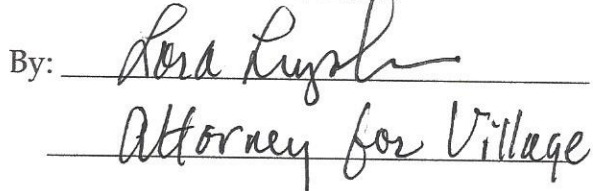 By: Lora
Attorney for Village